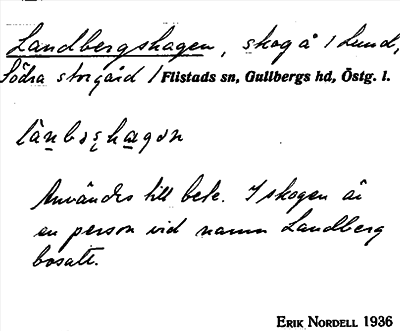 Landbergshagen, skog å 1 Lund,
Södra storgård / Flistads sn, Gullbergs hd, Östg. l.
Användes till bete. I skogen är
en person vid namn Landberg
bosatt.
ERIK NORDELL 1936